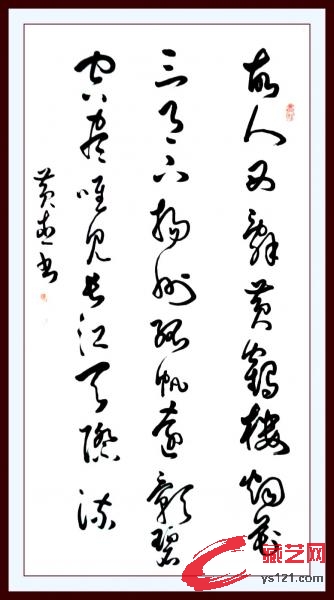 故人西辭黄鶴樓烟花
三月下揚州孤帆遠影碧
空盡唯見長江天際流
黄书
藏艺网
ys121.com